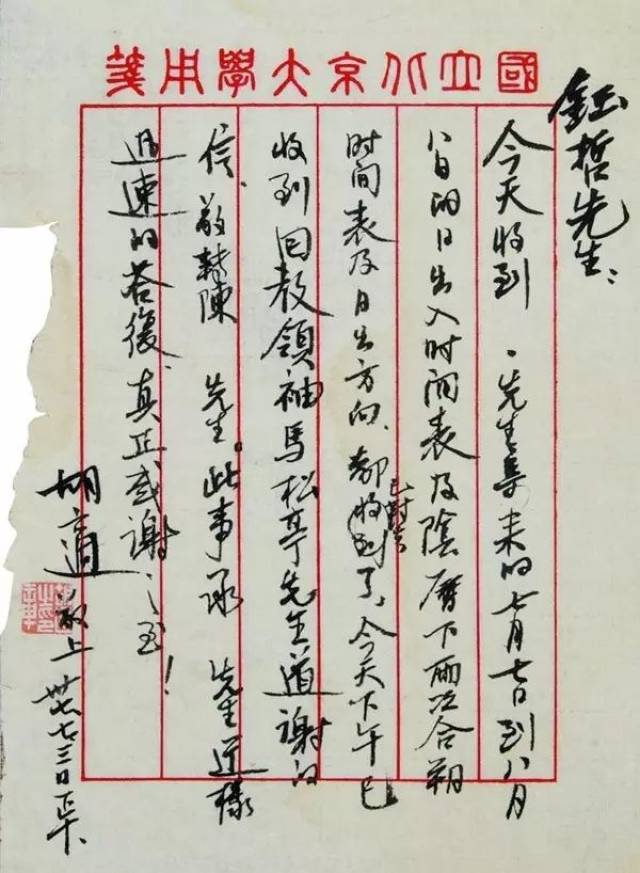 國立北京大學用箋
鈺哲先生：
今天收到 先生寄来的七月七日到八月
八日的日出入时间表及陰曆下兩次合朔
时间表及日出方向、都收到了，今天下午已
收到回教領袖馬松亭先生道謝的
信、敬轉陳 先生。此事承 先生這樣
迅速的答復、真正感謝之至！
胡適敬上 卅七、七、三日